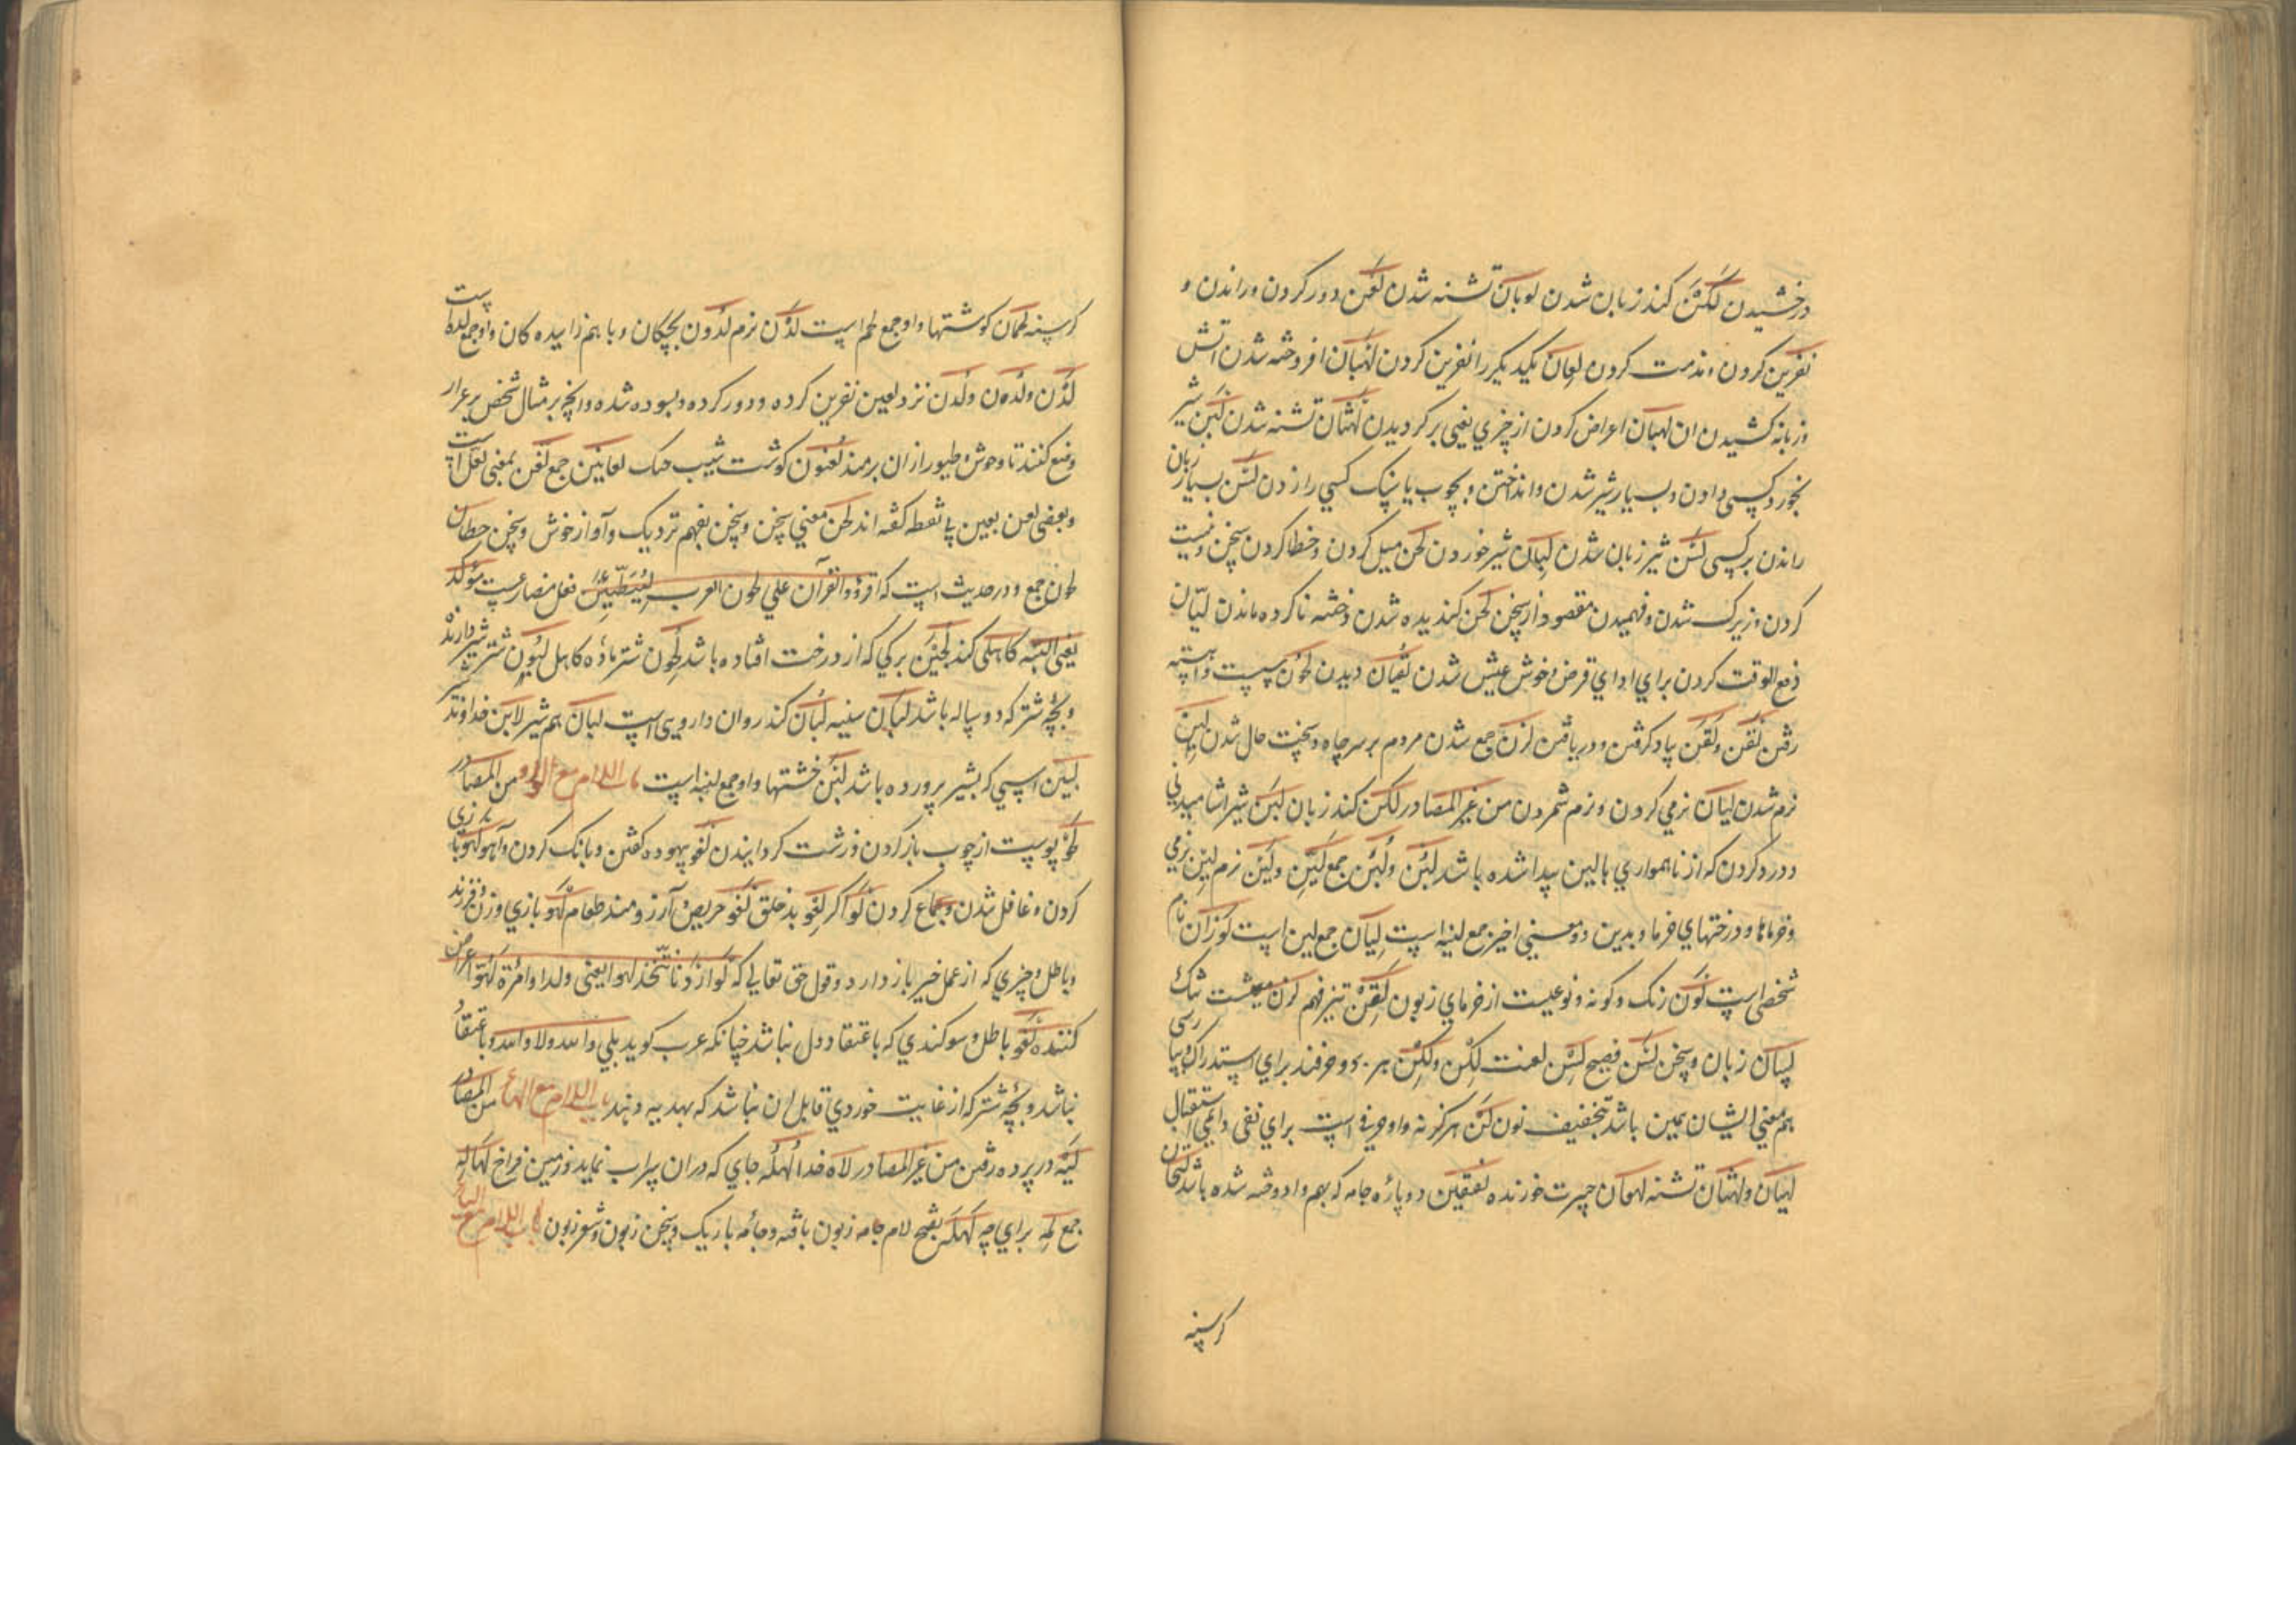 درخشیدن لَکْنَ کند زبان شدن لوبان تشنه شدن لَعْن دور کردن و راندن و
نفرین کردن و مذمت کردن لِعان یکدیکر را نفرین کردن لَهَبان افروخته شدن اتش
و زبانه کشیدن ان لهبان اعراض کردن از چیزی یعنی برکردیدن لَهَثان تشنه شدن لَبْن شیر
بخورد کسی دادن و بسیار شیر شدن و انداختن و بچوب یا بسنک کسی را زدن لَسْن بسیار زبان
راندن بر کسی لَسَن تیز زبان شدن لِبان شیر خوردن لحن میل کردن و خطا کردن سخن و نیست
کردن و زیرک شدن و فهمیدن مقصود از سخن لخن کندیده شدن و ختنه ناکرده ماندن لیّان
دفع الوقت کردن برای ادای قرض و خوش عیش شدن لُقْیان دیدن لحون پیست و اهسته
رفتن لَقَن و لَقْن یاد کرفتن و دریافتن لزن جمع شدن مردم بر سر چاه و سخت حال شدن لین
نرم شدن لیان نرمی کردن و نرم شمردن من غیر المصادر لکن کند زبان لبن شیر اشامیدنی
و درد کردن که از ناهمواری بالین پیدا شده باشد لَبِن و لُبْن جمع لَیِّن و لَیْن نرم لین نرمی
و خرماها و درختهای خرما و بدین دو معنی اخیر جمع لینه است لِیان جمع لین است لوزان نام
شخصی است لَوْن رنک و کونه و نوعیست از خرمای زبون لَقِن تیز فهم لزن معیشت تنک
لِسان زبان و سخن لَسِن فصیح لِسْن لغت لکِن و لکِنّ هر دو حرفند برای استدراک و بیا رسی
بهم معنی ایشان همین باشد بتخفیف نون لَنْ هرکز نه و او حرفی است برای نفی دایمی استقبال
لهبان و لهثان تشنه لهمان حیرت خورنده لِفْقین دو پاره جامه که بهم وا دوخته شده باشد لتحان
کرسنه
کرسنه لحمان کوشتها و او جمع لحم است لَدْن نرم لدون بچکان و با هم زاییده کان و او جمع لده است
لَدُن و لَدَن و لُدن نزد لعین نفرین کرده و دور کرده و بسوده شده و انچه بر مثال شخص بر غرار
وضع کنند تا وحوش و طیور از ان برمند لغنون کوشت شیب حنک لغانین جمع لَغَن بمعنی لعل است
و بعضی لعن بعین بی نقطه کفته اند لحن معنی سخن و سخن بفهم نزدیک و آواز خوش و سخن خطان
لحون جمع و در حدیث است که اقرؤا القرآن علی لحون العرب لَیُبَطِّئَنَّ فعل مضارعست مؤکد
یعنی البته کاهلی کند لجین برکی که از درخت افتاده باشد لَجون شتر ماده کاهل لبون شتر شیر دارنده
و بچه شتر که دو ساله باشد لَبان سینه لُبان کند روان دارویی است لبان هم شیر لابن خداوند
لبین اسپی که بشیر پرورده باشد لَبِن خشتها و او جمع لبنه است باب اللام مع الواو من المصادر
لَحْو پوست از چوب باز کردن و زشت کردانیدن لَغْو بیهوده کفتن و بانک کردن و آهو لَهْو بازی
کردن و غافل شدن و جماع کردن لَوْ اکر لقو بد خلق لَعْو حریص و آرزومند طعام لَهْو بازی و زن و فرزند
و باطل و چیزی که از عمل خیر باز دارد و قول حق تعالی که لو اردنا ان نتخذ لهوا یعنی ولدا و امرة لَهُوّ اعراض
کننده لَغْو باطل و سوکندی که باعتقاد دل نباشد چنانکه عرب کوید بلی والله و لا والله و باعتقاد
نباشد و بچه شتر که از غایت خوردی قابل ان نباشد که بهدیه دهند باب اللام مع الهاء من المصادر
لَیْه در پرده رفتن من غیر المصادر لاه خدا لُهْلُه جای که دران سراب نماید و زمین فراخ لهاله
جمع لِمَه برای چه لَهْلَه بفتح لام جامه زبون بافته و جامه باریک و سخن زبون و شعر زبون باب اللام مع الیاء